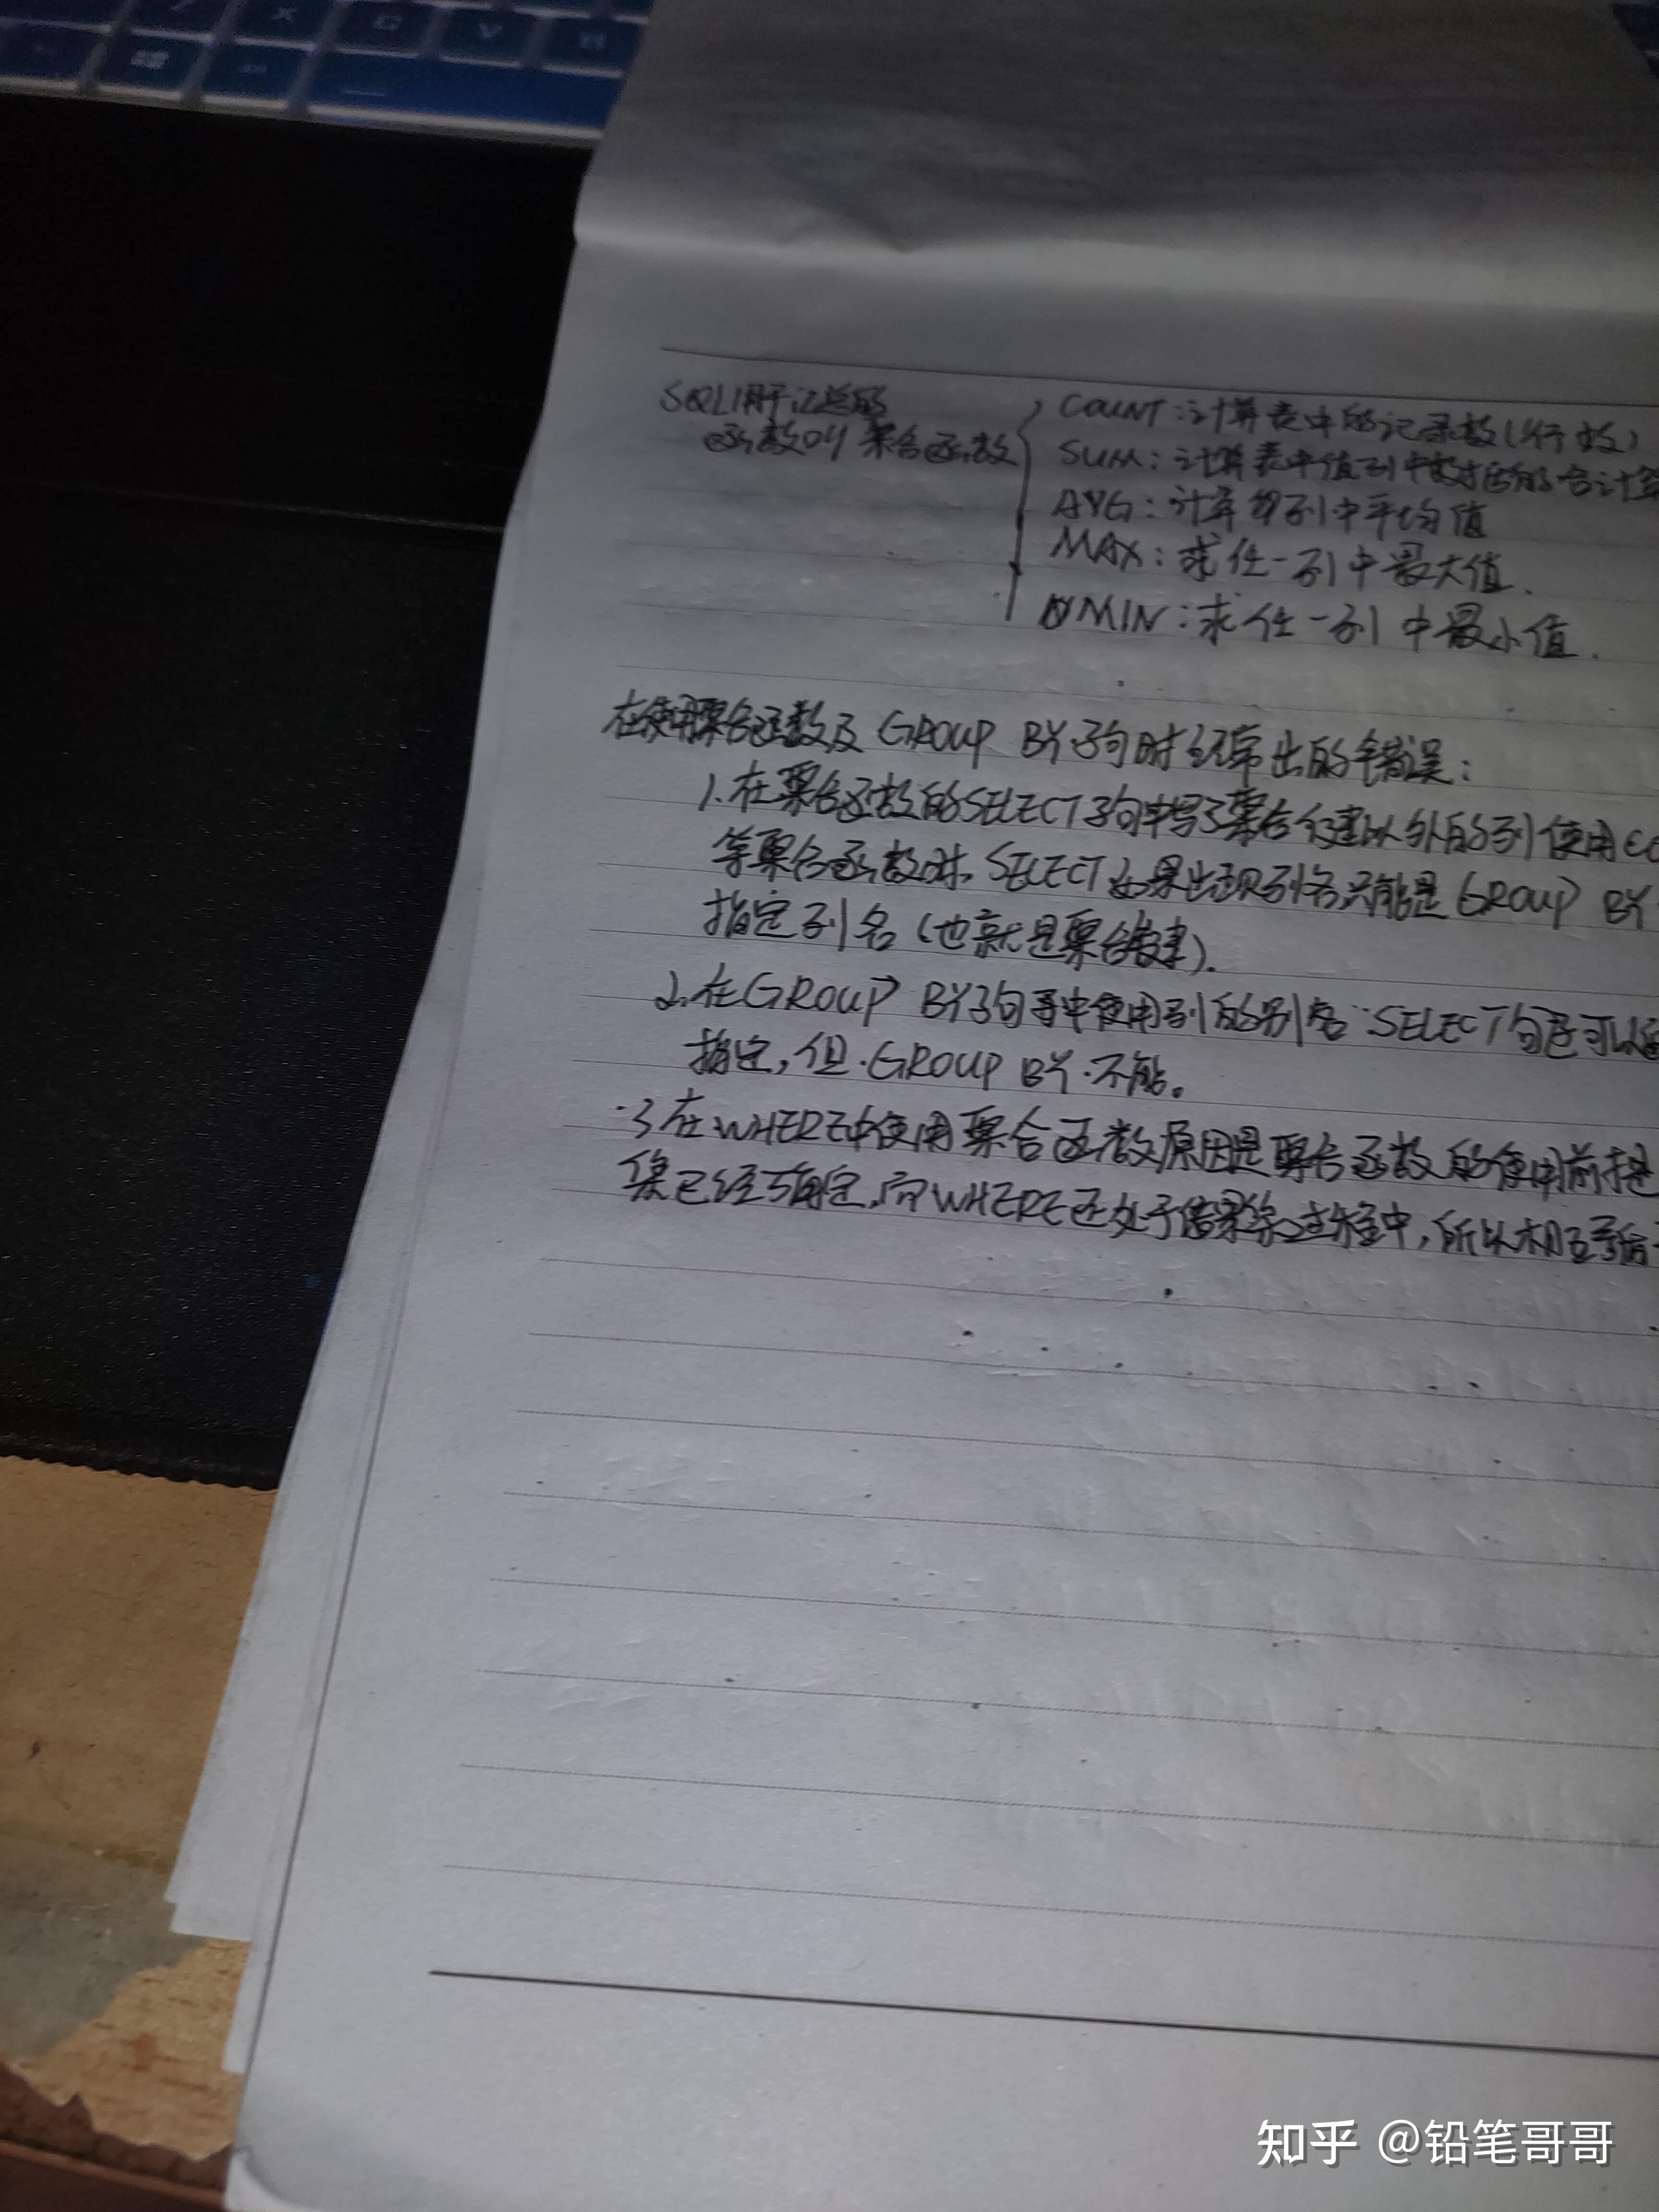 SQL用于汇总的
函数叫聚合函数
COUNT:计算表中的记录数(行数)
SUM:计算表中值列中数据的合计
AVG:计算列中平均值
MAX:求任一列中最大值.
MIN:求任一列中最小值.
在使用聚合函数及 GROUP BY子句时经常出的错误:
1.在聚合函数的SELECT子句中写了聚合键以外的列 使用CO
等聚合函数时,SELECT如果出现列名只能是GROUP BY
指定列名(也就是聚合键).
2.在GROUP BY子句中使用列的别名:SELECT句可以
指定,但GROUP BY不能。
3.在WHERE中使用聚合函数原因是聚合函数的使用前提是
集已经确定,而WHERE还处于结果集过程中,所以相互
知乎 @铅笔哥哥